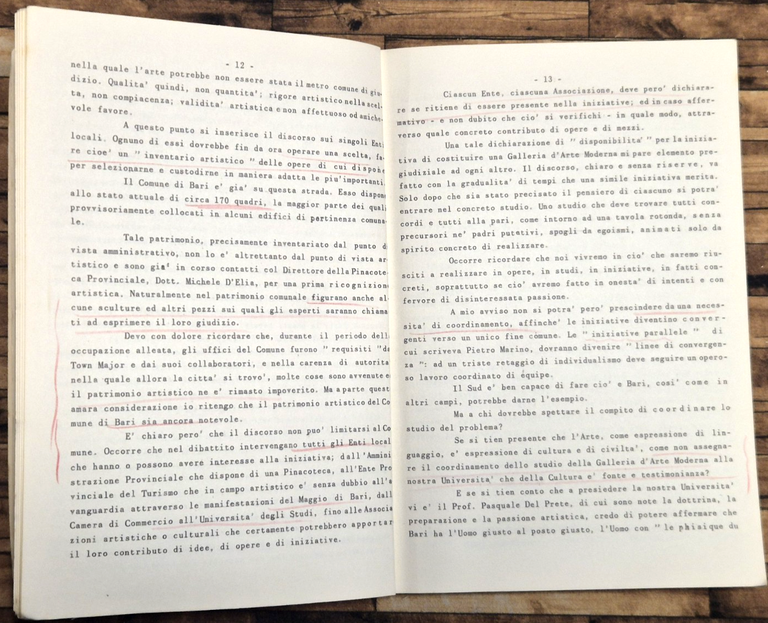 - 12 -
nella quale l'arte potrebbe non essere stata il metro comune di giu-
dizio. Qualita' quindi, non quantita'; rigore artistico nella scel-
ta, non compiacenza; validita' artistica e non affettuoso od amiche-
vole favore.
A questo punto si inserisce il discorso sui singoli Enti
locali. Ognuno di essi dovrebbe fin da ora operare una scelta, fa-
re cioe' un " inventario artistico " delle opere di cui dispone
per selezionarne e custodirne in maniera adatta le piu'importanti.
Il Comune di Bari e' gia' su questa strada. Esso dispone
allo stato attuale di circa 170 quadri, la maggior parte dei quali
provvisoriamente collocati in alcuni edifici di pertinenza comuna-
le.
Tale patrimonio, precisamente inventariato dal punto di
vista amministrativo, non lo e' altrettanto dal punto di vista ar-
tistico e sono gia' in corso contatti col Direttore della Pinacote-
ca Provinciale, Dott. Michele D'Elia, per una prima ricognizione
artistica. Naturalmente nel patrimonio comunale figurano anche al-
cune sculture ed altri pezzi sui quali gli esperti saranno chiama-
ti ad esprimere il loro giudizio.
Devo con dolore ricordare che, durante il periodo della
occupazione alleata, gli uffici del Comune furono " requisiti " da
Town Major e dai suoi collaboratori, e nella carenza di autorita'
nella quale allora la citta' si trovo', molte cose sono avvenute e
il patrimonio artistico ne e' rimasto impoverito. Ma a parte questa
amara considerazione io ritengo che il patrimonio artistico del Co-
mune di Bari sia ancora notevole.
E' chiaro pero' che il discorso non puo' limitarsi al Co-
mune. Occorre che nel dibattito intervengano tutti gli Enti locali
che hanno o possono avere interesse alla iniziativa; dall'Ammini-
strazione Provinciale che dispone di una Pinacoteca, all'Ente Pro-
vinciale del Turismo che in campo artistico e' senza dubbio all'a-
vanguardia attraverso le manifestazioni del Maggio di Bari, dalla
Camera di Commercio all'Universita' degli Studi, fino alle Associa-
zioni artistiche o culturali che certamente potrebbero apportare
il loro contributo di idee, di opere e di iniziative.
- 13 -
Ciascun Ente, ciascuna Associazione, deve pero' dichiara-
re se ritiene di essere presente nella iniziative; ed in caso affer-
mativo - e non dubito che cio' si verifichi - in quale modo, attra-
verso quale concreto contributo di opere e di mezzi.
Una tale dichiarazione di " disponibilita' " per la inizia-
tiva di costituire una Galleria d'Arte Moderna mi pare elemento pre-
giudiziale ad ogni altro. Il discorso, chiaro e senza riserve, va
fatto con la gradualita' di tempi che una simile iniziativa merita.
Solo dopo che sia stato precisato il pensiero di ciascuno si potra'
entrare nel concreto studio. Uno studio che deve trovare tutti con-
cordi e tutti alla pari, come intorno ad una tavola rotonda, senza
precursori ne' padri putativi, spogli da egoismi, animati solo da
spirito concreto di realizzare.
Occorre ricordare che noi vivremo in cio' che saremo riu-
sciti a realizzare in opere, in studi, in iniziative, in fatti con-
creti, soprattutto se cio' avremo fatto in onesta' di intenti e con
fervore di disinteressata passione.
A mio avviso non si potra' pero' prescindere da una neces-
sita' di coordinamento, affinche' le iniziative diventino conver-
genti verso un unico fine comune. Le " iniziative parallele " di
cui scriveva Pietro Marino, dovranno divenire " linee di convergen-
za ": ad un triste retaggio di individualismo deve seguire un opero-
so lavoro coordinato di équipe.
Il Sud e' ben capace di fare cio' e Bari, cosi' come in
altri campi, potrebbe darne l'esempio.
Ma a chi dovrebbe spettare il compito di coordinare lo
studio del problema?
Se si tien presente che l'Arte, come espressione di lin-
guaggio, e' espressione di cultura e di civilta', come non assegna-
re il coordinamento dello studio della Galleria d'Arte Moderna alla
nostra Universita' che della Cultura e' fonte e testimonianza?
E se si tien conto che a presiedere la nostra Universita'
vi e' il Prof. Pasquale Del Prete, di cui sono note la dottrina, la
preparazione e la passione artistica, credo di potere affermare che
Bari ha l'Uomo giusto al posto giusto, l'Uomo con " le phisique du